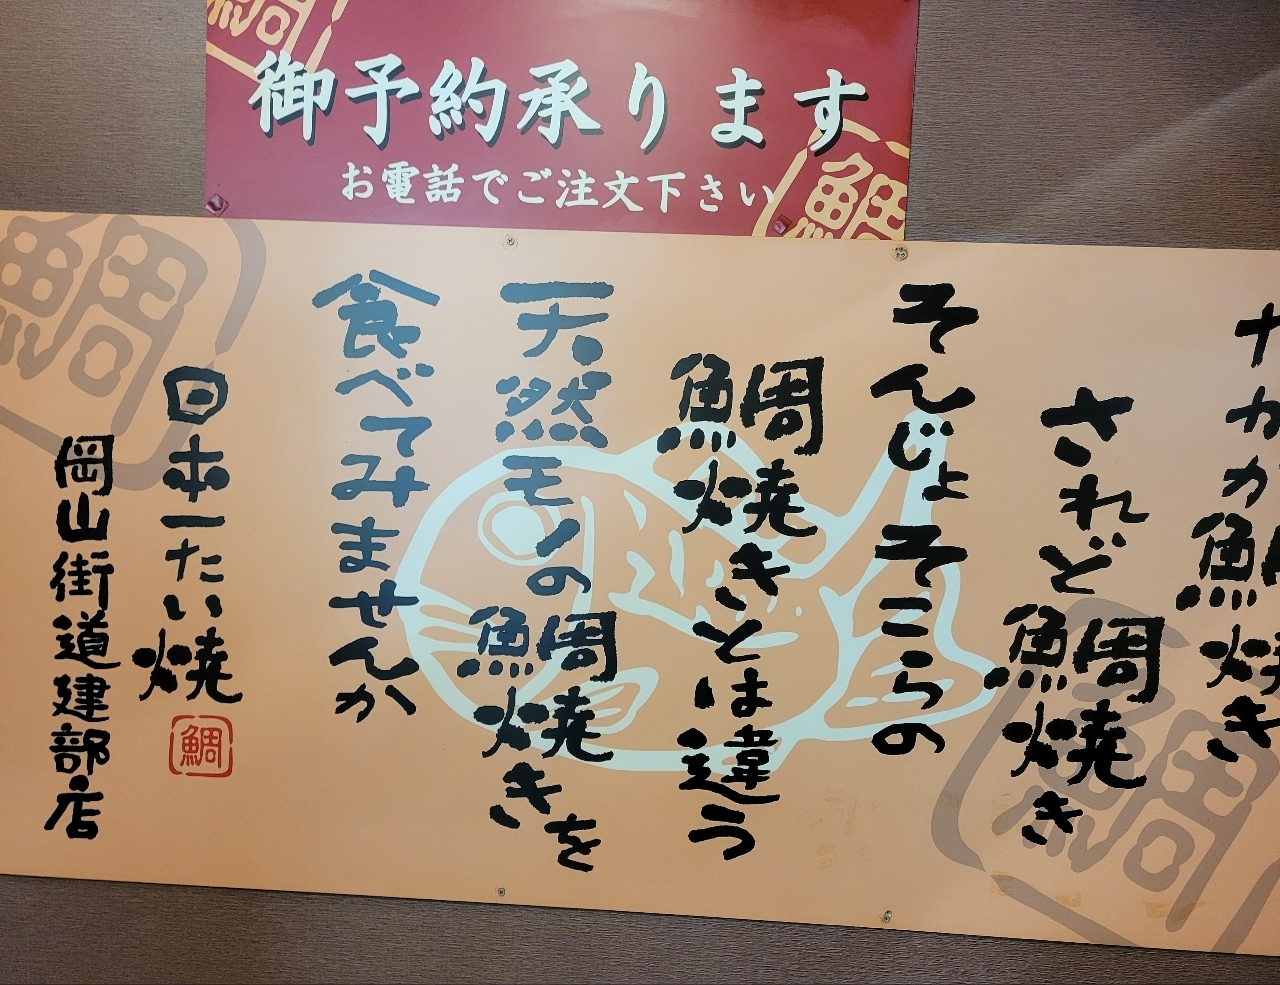 御予約承ります
お電話でご注文下さい
たかが鯛焼き
されど鯛焼き
そんじょそこらの
鯛焼きとは違う
天然モノの鯛焼きを
食べてみませんか
日本一たい焼
鯛
岡山街道建部店
鯛
鯛
鯛
鯛